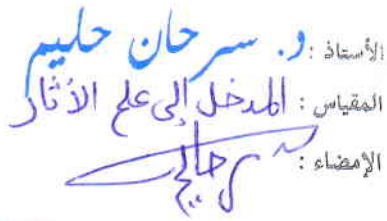 الأستاذ : د. سرحان حليم
المقياس : المدخل إلى علم الأثار
الإمضاء :